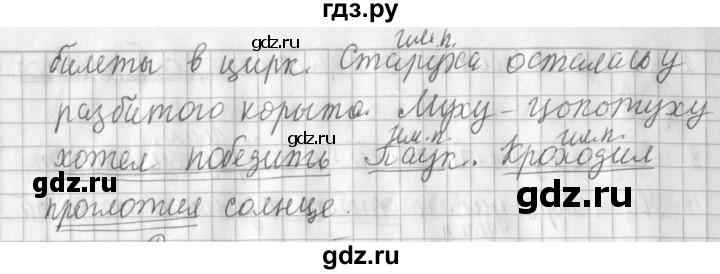 гдз.ру
им.п.
билеты в цирк. Старуха осталась у
gdz.ru
разбитого корыта. Муху-цокотуху
gdz.ru
им.п. им.п.
хотел победить Паук. Крокодил
gdz.ru gdz.ru
проглотил солнце.
gdz.ru